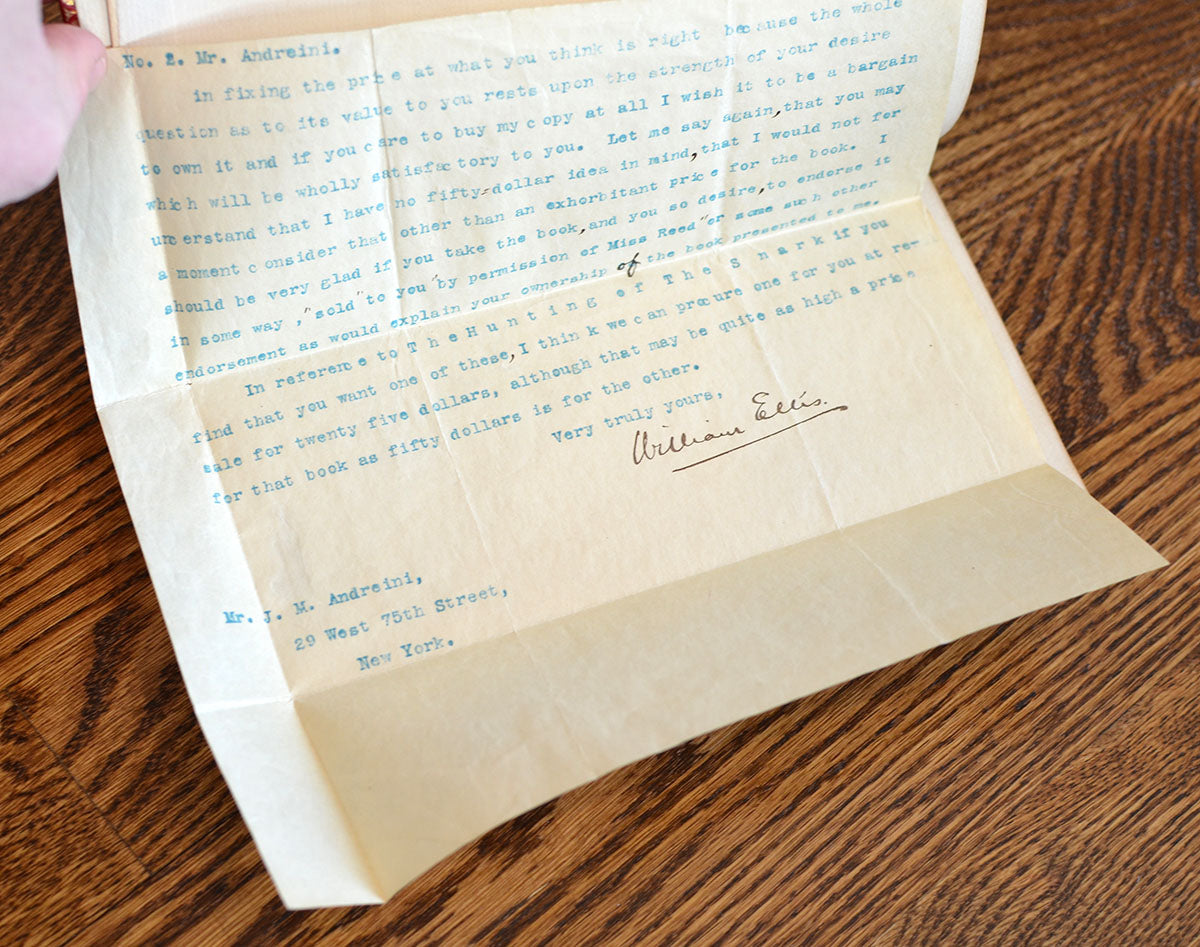 No. 2. Mr. Andreini.
in fixing the price at what you think is right because the whole
question as to its value to you rests upon the strength of your desire
to own it and if you care to buy my copy at all I wish it to be a bargain
which will be wholly satisfactory to you. Let me say again, that you may
understand that I have no fifty-dollar idea in mind, that I would not for
a moment consider that other than an exhorbitant price for the book. I
should be very glad if you take the book, and you so desire, to endorse it
in some way, "sold" to you "by permission of Miss Reed" or some such other
endorsement as would explain your ownership of the book presented to me.
In reference to T h e H u n t i n g o f T h e S n a r k if you
find that you want one of these, I think we can procure one for you at re-
sale for twenty five dollars, although that may be quite as high a price
for that book as fifty dollars is for the other.
Very truly yours,
William Ellis.
Mr. J. M. Andreini,
29 West 75th Street,
New York.